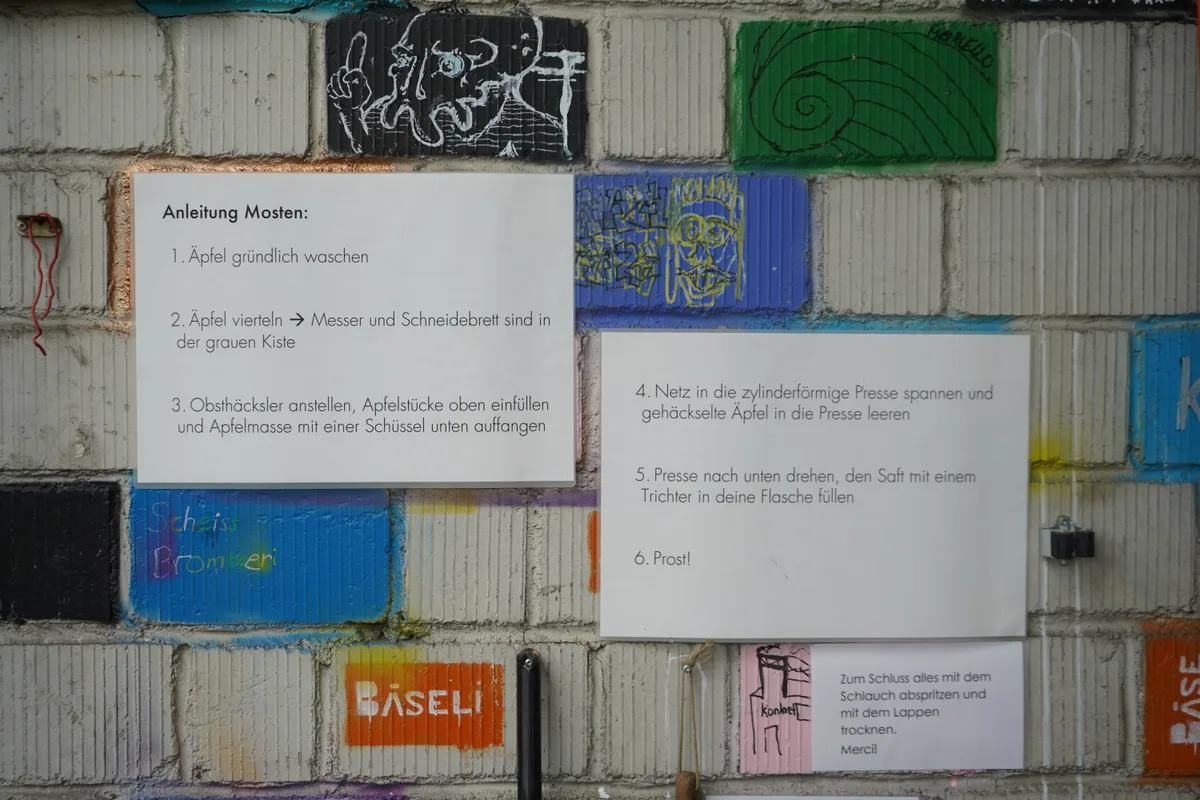 MARCELLO
Anleitung Mosten:
1. Äpfel gründlich waschen
2. Äpfel vierteln → Messer und Schneidebrett sind in
der grauen Kiste
3. Obsthäcksler anstellen, Apfelstücke oben einfüllen
und Apfelmasse mit einer Schüssel unten auffangen
4. Netz in die zylinderförmige Presse spannen und
gehäckselte Äpfel in die Presse leeren
5. Presse nach unten drehen, den Saft mit einem
Trichter in deine Flasche füllen
6. Prost!
Scheiss
Brombeeri
BÄSELI
konkret
Zum Schluss alles mit dem
Schlauch abspritzen und
mit dem Lappen
trocknen.
Merci!
BÄSE